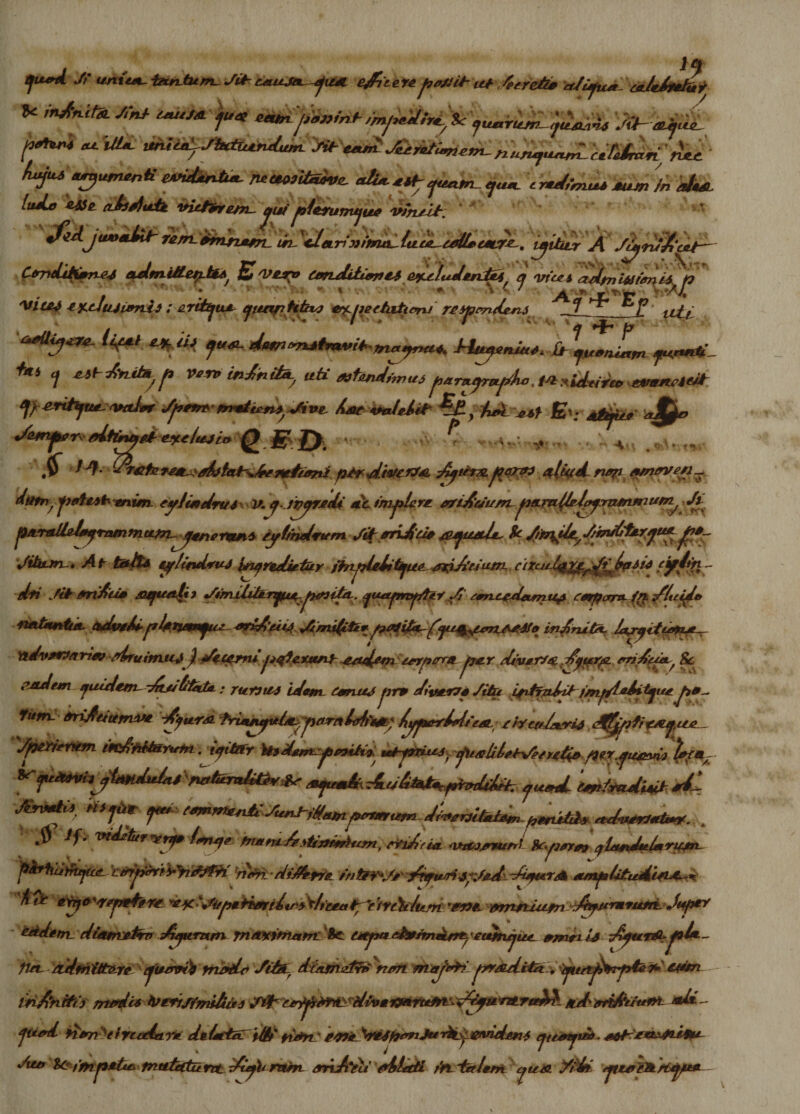 19
quod si unica tantum sit causa quae efficere possit ut secretio aliqua celebretur,
& infinitae sint causae quae eam possint impedire, & quarumquamvis sit aeque
potens ac illa unica, statuendum sit eam secretionem nunquam celebrari, nec
hujus argumenti evidentia necessitasve alia est quam qua credimus eum in aleae
ludo esse absolute victorem qui plerumque vincit.
Sed juvabit rem omnem in clarissima luce collocare. igitur A significat
Conditiones admittentes, E vero conditiones excludentes, q vices admissionis, p
vices exclusionis; eritque quantitas expectationi respondens Aq + Ep / q + p uti
colligere licet ex iis quae demonstravit magnus Hugenius. Et quoniam quanti-
tas q est finita, p vero infinita, uti ostendimus paragrapho idcirco evanescit
q, eritque valor spem metiens, sive hac valebit Ep / p, hoc est E: atque adeo
semper obtinget exclusio Q. E. D.
§ 14. Praeterea obstat secretioni per diversae figurae poros aliud non amoven-
dum, potest enim cylindrus v. g. ingredi ac implere orificium parallelogrammum, si
parallelogrammum generans cylindrum sit orificio aequale & simile, similiterque po-
situm. At talis cylindrus ingredietur implebitque orificium circulare, si basis cylin-
dri sit orificio aequalis similiterque posita. quapropter si concedamus corpora in fluido
natantia advehi planeque orificiis similiter posita (quae concessio infinita largitione
adversarios obruimus) secerni poterunt eadem corpora per diversae figurae orificia, &
eadem quidem facilitate: rursus idem conus pro diverso situ intrabit implebitque po-
rum orificiumve figurae triangulae, parabolicae, hyperbolicae, circularis, ellipticaeque
specierum infinitarum. igitur iisdem positis ut prius, qualibet secretio per quaevis loca,
& quasvis glandulas naturaliter & aequali facilitate prodibit. quod contradicit ob-
servatis, iisque qui commenti sunt illam pororum diversitatem penitus adversatur.
§ 15. videtur ergo longe manifestissimum, orificia vasorum & poros glandularum
partiumque corporis nostri non differre inter se figuris, sed figurae amplitudine.
hic ergo repetere ex superioribus liceat, circulum esse omnium figurarum super
eadem diametro figuram maximam & capacissimam, eumque omnis figurae pla-
na admittere quovis modo sita, diametro non majori praedita, quapropter cum
infinitis modis verisimilius sit corpora diversarum figurarum ad orificium ali-
quod non circulare delata illi non esse responsura, evidens quoque est ea nisu
suo & impetu mutatura figuram orificii oblati in talem quae sibi quocunque